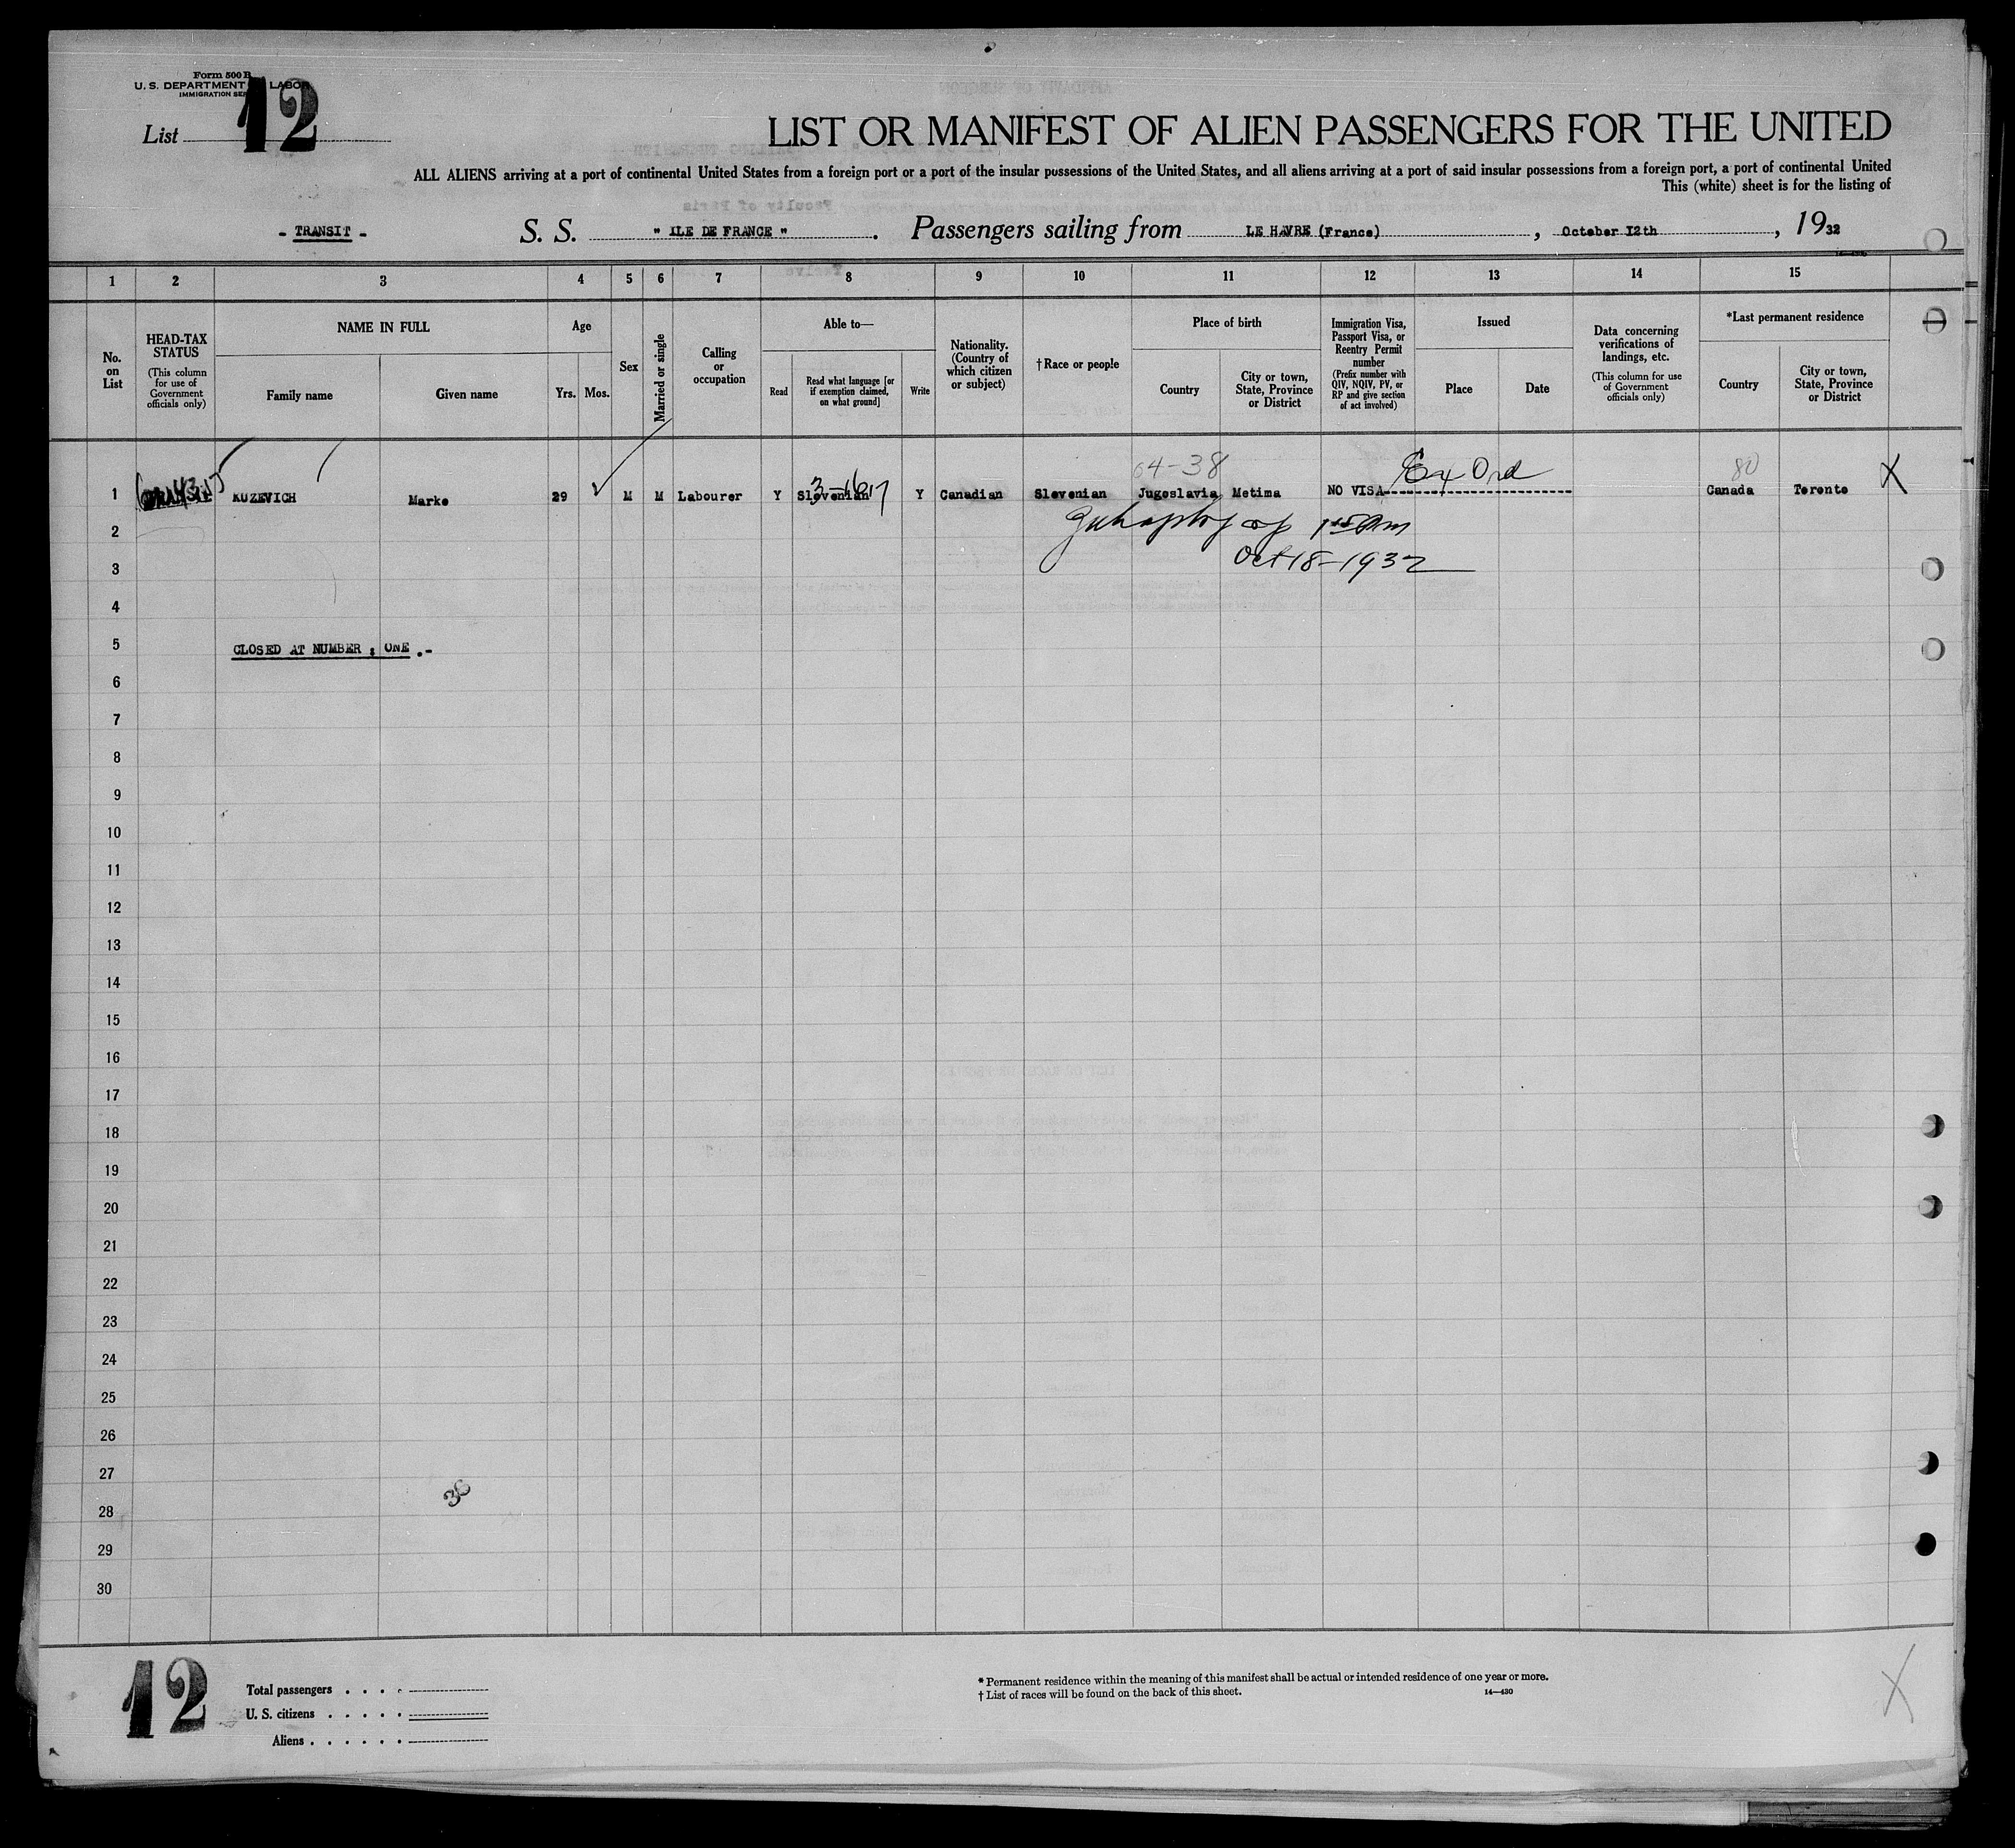 Form 500 B
U. S. DEPARTMENT LABOR
IMMIGRATION SER
List 12
LIST OR MANIFEST OF ALIEN PASSENGERS FOR THE UNITED
ALL ALIENS arriving at a port of continental United States from a foreign port or a port of the insular possessions of the United States, and all aliens arriving at a port of said insular possessions from a foreign port, a port of continental United
This (white) sheet is for the listing of
- TRANSIT - S. S. " ILE DE FRANCE " . Passengers sailing from LE HAVRE (France) , October 12th , 1932
1 2 3 4 5 6 7 8 9 10 11 12 13 14 15
No. on List
HEAD-TAX STATUS
(This column for use of Government officials only)
NAME IN FULL
Family name Given name
Age
Yrs. Mos.
Sex
Married or single
Calling or occupation
Able to—
Read
Read what language [or if exemption claimed, on what ground]
Write
Nationality. (Country of which citizen or subject)
† Race or people
Place of birth
Country
City or town, State, Province or District
Immigration Visa, Passport Visa, or Reentry Permit number
(Prefix number with QIV, NQIV, PV, or RP and give section of act involved)
Issued
Place Date
Data concerning verifications of landings, etc.
(This column for use of Government officials only)
*Last permanent residence
Country
City or town, State, Province or District
64-38 Ex Ord 80
1 TRANSIT KUZEVICH Marke 29 ✓ M M Labourer Y Slovenian Y Canadian Slevenian Jugoslavia Metima NO VISA Canada Terente X
2
Oct 18-1932
3
4
5 CLOSED AT NUMBER : ONE .-
6
7
8
9
10
11
12
13
14
15
16
17
18
19
20
21
22
23
24
25
26
27
28
29
30
12
Total passengers . . . .
U. S. citizens . . . . .
Aliens . . . . . .
* Permanent residence within the meaning of this manifest shall be actual or intended residence of one year or more.
† List of races will be found on the back of this sheet. 14—430
X